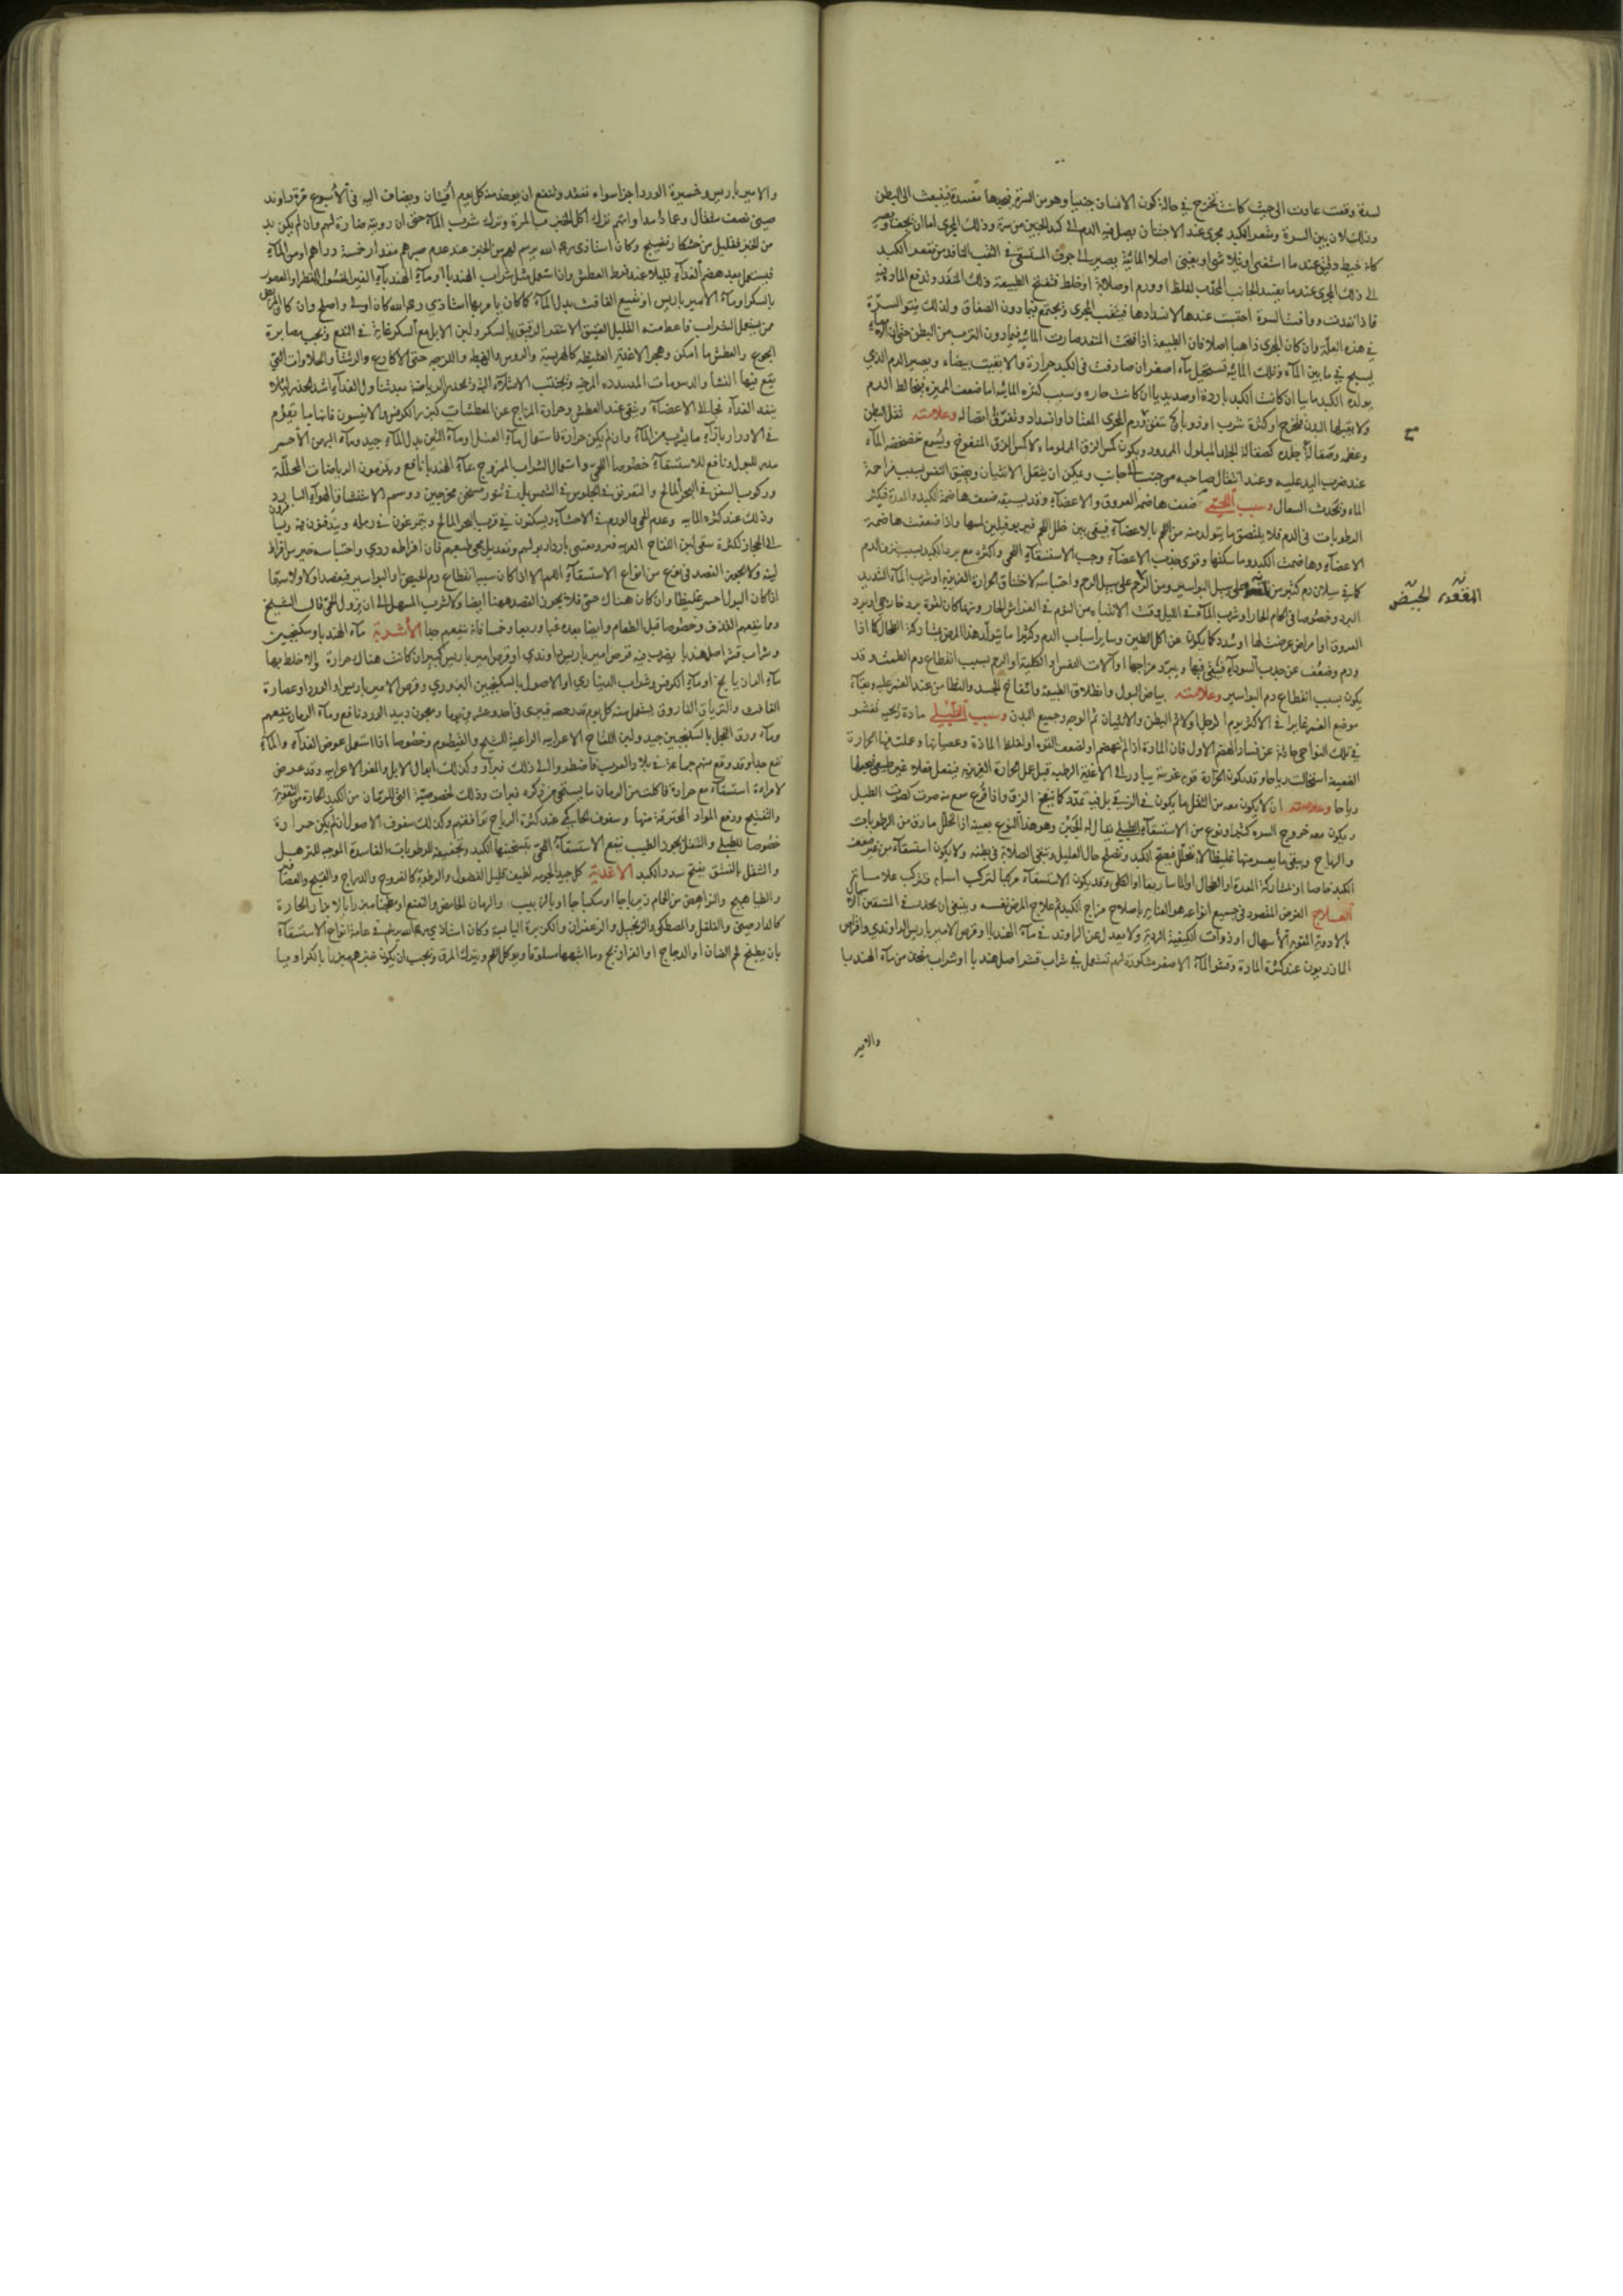 لسدة وقعت عادت الى حيث كانت تخرج في حالة كون الانسان جنينا وهو من السرة فينبعث الى البطن
وذلك لان بين السرة ومقعر الكبد مجرى عند الاجتنان يصل فيه الدم الى كبد الجنين من سرته وذلك المجرى اما ان يجف ويصير
كانه خيط دقيق عندما استغنى او يتلاشى او يفنى اصلا المائية يصير الى جوف المستسقي في الثقب النافذ من مقعر الكبد
الى ذلك المجرى عندما ينسد الجانب المحدب لغلظ او ورم او صلابة او خلط فتفتح الطبيعة ذلك المنفذ وتدفع الماء فيه
فاذا نفدت ووافت السرة احتبست عندها لانسدادها فينثقب المجرى وتجتمع فيما دون الصفاق ولذلك ينتو السرة
في هذه العلة وان كان المجرى ذاهبا اصلا فان الطبيعة اذا فتحت المنفذ صارت المائية فيما دون الثرب من البطن حتى ان
يسبح في ما بين الماء وتلك المائية تستحيل ماء اصفر ان صادفت في الكبد حرارة والا بقيت بيضاء ويصير الدم الذي
يولده الكبد مائيا ان كانت الكبد باردة او صديديا ان كانت حاره وسبب كثرة المائية اما ضعف المميزة فيخالط الدم
ولا يقبلها البدن فتخرج او كثرة شرب او ذوبان وتفرق اتصاله وعلامته ثقل البطن
وعظمه وصقالة جلده كصقالة الجلد المبلول الممدود ويكون كمس الزق المملو ماء لا كمس الزق المنفوخ ويسمع خضخضة الماء
عند ضرب اليد عليه وعند انتقال صاحبه من جنب الى جانب ويمكن ان يثقل الانثيان ويضيق النفس بسبب مزاحمة
الماء ويحدث السعال وسبب اللحمي ضعف هاضمة العروق والاعضاء وقد يسبقه ضعف هاضمة الكبد والمعدة فيكثر
الرطوبات في الدم فلا يلتصق ما يتولد منه من اللحم بالاعضاء فيبقى بين خلل اللحم فيربو فيلين لمسها واذا ضعفت هاضمة
الاعضاء وهاضمة الكبد وماسكتها وقوى جذب الاعضاء وجب الاستسقاء اللحمي واكثره مع برد الكبد بسبب نزف الدم
كما في سيلان دم كثير من المقعدة على سبيل البواسير ومن الرحم على سبيل الرحم واحتباسه لاختناق الحرارة الغريزية او شرب الماء الشديد
البرد وخصوصا في الحمام الحار او شرب الماء في الليل وقت الانتباه من النوم في الفراش الحار وربما كان لقوة برد خارجي او برد
العروق او امراض عرضت لها او سدد كما يكون عن اكل الطين وساير اسباب الدم وكثيرا ما يتولد هذا المرض بمشاركة الطحال كما اذا
ورم وضعف عن جذب السوداء فيبقى فيها ويبرد مزاجها او آلات النفس او الكلية او الرحم بسبب انقطاع دم الطمث وقد
يكون بسبب انقطاع دم البواسير وعلامته بياض البول وانطلاق الطبيعة وانتفاخ الجسد والتطامن عند الغمز عليه وبقاء
موضع الغمز غايرا في الاكثر يوم الرجل اولا ثم البطن والانثيان ثم الوجه وجميع البدن وسبب الطبلي مادة ريحية تفشو
في تلك النواحي حادثة عن فساد الهضم الاول فان المادة اذا لم تنهضم او لضعف القوة او لغلظ المادة وعصيانها وعملت فيها الحرارة
الضعيفة استحالت رياحا وقد يكون الحرارة قوية غريبة يبادر الى الاغذية الرطبة قبل عمل الحرارة الغريزية فيفعل فعلا غير طبيعي فيحيلها
رياحا وعلامته ان لا يكون معه من الثقل ما يكون في الزقي بل فيه تمدد كما ينفخ الزق واذا قرع سمع منه صوت كصوت الطبل
ويكون معه خروج السرة كثيرا ونوع من الاستسقاء الطبلي يقال له الجبن وهو هذا النوع بعينه اذا تحلل مارق من الرطوبات
والرياح ويبقى ما يعسر منها غليظا لا يتحلل فيصح الكبد وتصلح حال العليل وتبقى الصلابة في بطنه ولا يكون استسقاء من غير ضعف
الكبد خاصا او بمشاركة المعدة او الطحال او الماساريقا او الكلى وقد يكون الاستسقاء مركبا لتركب اسبابه فتركب علاماته
العلاج الغرض المقصود في جميع انواعه هو العناية باصلاح مزاج الكبد ثم علاج المرض نفسه وينبغي ان يحدر في المستسقين
بالادوية القوية الاسهال او ذوات الكيفية الردية ولا يعدل عن الراوند في ماء الهندبا وقرص الامير باريس الراوندي واقراص
المازريون عند كثرة المادة وقشو الماء الاصفر مشكورة لهم تستعمل في شراب قشر اصل هندبا او شراب متخذ من ماء الهندبا
المقعدة الحيض
والامير
والامير باريس وخميرة الورد اجزا سواء نفعه وتمنع ان يوخذ منه كل يوم اوقيتان ويضاف اليه في الاسبوع مرة راوند
صيني نصف مثقال وعماد امرهم ترك اكل الخبز بالمرة وترك شرب الماء حتى ان رويته ضارة لهم وان لم يكن بد
من الخبز فقليل من خشكار نضيج وكان استاذي رحمه الله يرسم لهم من الخبز عند عدم صبرهم مقدار خمسة دراهم ومن الماء
فيستعمل بعد هضم الغذاء قليلا عند فرط العطش واذا استعمل مثل شراب الهندبا او ماء الهندبا الغير المغسول المقطر او المعصور
بالسكر او ماء الامير باريس او نقيع الغافت بدل الماء كما كان يامر بها استاذي رحمه الله كان اولى واصلح وان كان المريض
ممن يستعمل الشراب فاعط منه القليل العتيق الاشقر الرقيق بالسكر ولبن الابل مع السكر غاية في النفع ويجب مصابرة
الجوع والعطش ما امكن وهجر الاغذية الغليظة كالهريسة والرؤس والغبط والفرجه حتى الاكارع والرشتا والحلاوات التي
يقع فيها النشا والدسومات المسددة المرخية ويجتنب الامتلاء البتة ويحذر الرياضة بعد تناول الغذاء اشد الحذر لئلا
ينفد الغذاء نيا الى الاعضاء ويتقى عند العطش وحرارة المزاج عن المعطشات كبزر الكرفس والانيسون فانها مما يقوم
في الادرار باقراء ما يشرب من الماء وان لم يكن حرارة فاستعمال ماء العسل او ماء التين بدل الماء جيد وماء البهمن الاحمر
مدر للبول ونافع للاستسقاء خصوصا اللحمي واستعمال الشراب الممزوج بماء الهندبا نافع ويلزمون الرياضات المحللة
وركوب السفن في البحر المالح والتعرق في الجلوس في الشمس بل في تنور مسخن مخرجين رووسهم الاستنشاق الهواء البارد
وذلك عند كثرة المائية وعدم الحمى والورم في الاحشاء ويسكنون في قرب البحر المالح ويتمرغون في رمله ويندفنون فيه
الى الحجاز لكثرة سقي لبن اللقاح العربية فيهم ويعتنى بادرار بولهم وتعديل مجى طبعهم فان افراطه ردي واحتباسه خير من افراط
لينه ولا يجوز الفصد في نوع من انواع الاستسقاء اللهم الا اذا كان سببه انقطاع دم الحيض او البواسير فيفصد اولا ولا سيما
اذا كان البول احمر غليظا وان كان هناك حمى فلا يجوز الفصد ههنا ايضا ولا شرب المسهل الى ان يزول الحمى قال الشيخ
ومما ينفعهم القذف وخصوصا قبل الطعام وايضا بعده غبا وربعا وخمسا فانه ينفعهم جدا الاشربة ماء الهندبا وسكنجبين
وشراب قشر اصل هندبا يضرب فيه قرص امير باريس راوندي او قرص امير باريس كبير ان كانت هناك حرارة والا خلط بها
ماء الرازيانج او ماء الكرفس وشراب الديناري او الاصول بالسكنجبين البزوري وقرص الامير باريس او الورد او عصارة
الغافت والترياق الفاروق يستعمل منه كل يوم قدر حمصة فيبرى في احد وعشرين يوما ومعجون دبيد الورد نافع وماء الرمان ينفعهم
وماء ورق الفجل بالسكنجبين جيد ولبن اللقاح الاعرابية الراعية للشيح والقيصوم وخصوصا اذا استعمل عوض الغذاء والماء
نفع جدا وقد وقع منهم جماعة في بلاد العرب فاضطروا الى ذلك فبراوا وكذلك ابوال الابل والمعز الاعرابية وقد عرض
لامراة استسقاء مع حرارة فاكلت من الرمان ما يستحى من ذكره فبرات وذلك لخصوصية التي للرمان من الكبد الحارة من التقوية
والتفتيح ودفع المواد المحترقة منها وسفوف الحاركي عند كثرة الرياح توافقهم وكذلك سفوف الاصول ان لم يكن حرارة
خصوصا للطبلي والتنقل بجوز الطيب ينفع الاستسقاء اللحمي بتسخينها الكبد وتجفيفه للرطوبات الفاسدة الموجبة للترهل
والتنقل بالفستق يفتح سدد الكبد الاغذية كل جيد الجوهر لطيف قليل الفضول والرطوبة كالفروج والدراج والقبج والعصافير
والطياهيج والنواهض من الحمام زيرباجا او سكباجا او بالزبيب والرمان الحامض والنعنع او مطجنا مبزرا بالابزار الحارة
كالدارصيني والفلفل والمصطكى والزنجبيل والزعفران والكزبرة اليابسة وكان استاذي رحمه الله يرسم في عامة انواع الاستسقاء
بان يطبخ لحم الضان او الدجاج او الفراريج وما اشبهها سلوقا ويوكل اللحم ويترك المرق ويجب ان يكون خبزهم مبزرا بالكراويا